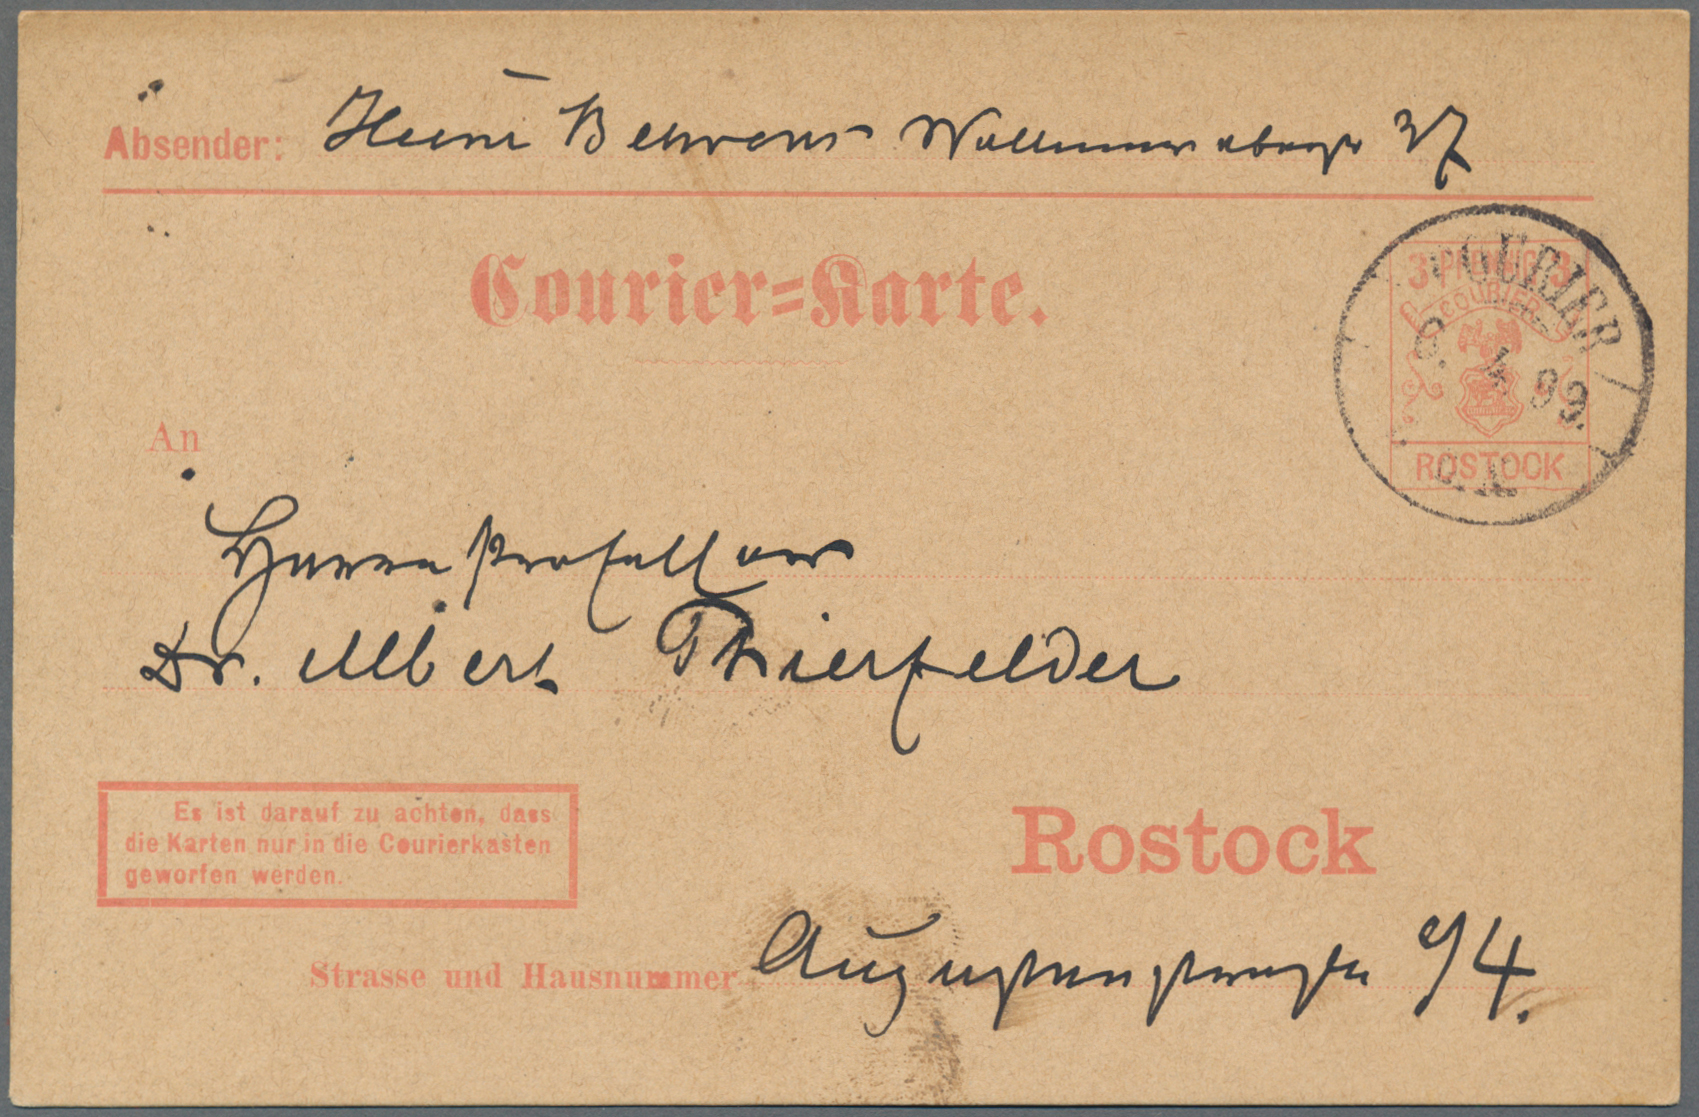 Absender: Heinr Behrens 37
Courier=Karte.
3 PFENNIG 3
COURIER
ROSTOCK
COURIER
8. 4 99.
An
Herrn Professor
Dr. Albert Thierfelder
Es ist darauf zu achten, dass
die Karten nur in die Courierkasten
geworfen werden.
Rostock
Strasse und Hausnummer Augustenstraße